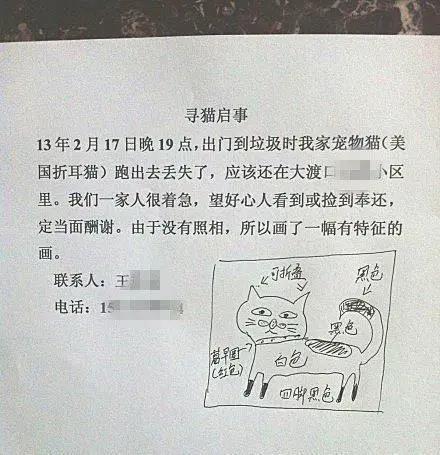 寻猫启事
13年2月17日晚19点,出门到垃圾时我家宠物猫(美
国折耳猫)跑出去丢失了,应该还在大渡口 小区
里。我们一家人很着急,望好心人看到或捡到奉还,
定当面酬谢。由于没有照相,所以画了一幅有特征的
画。
联系人:王
电话:15 4
可折叠
黑色
黑色
白色
(红色)
四脚黑色